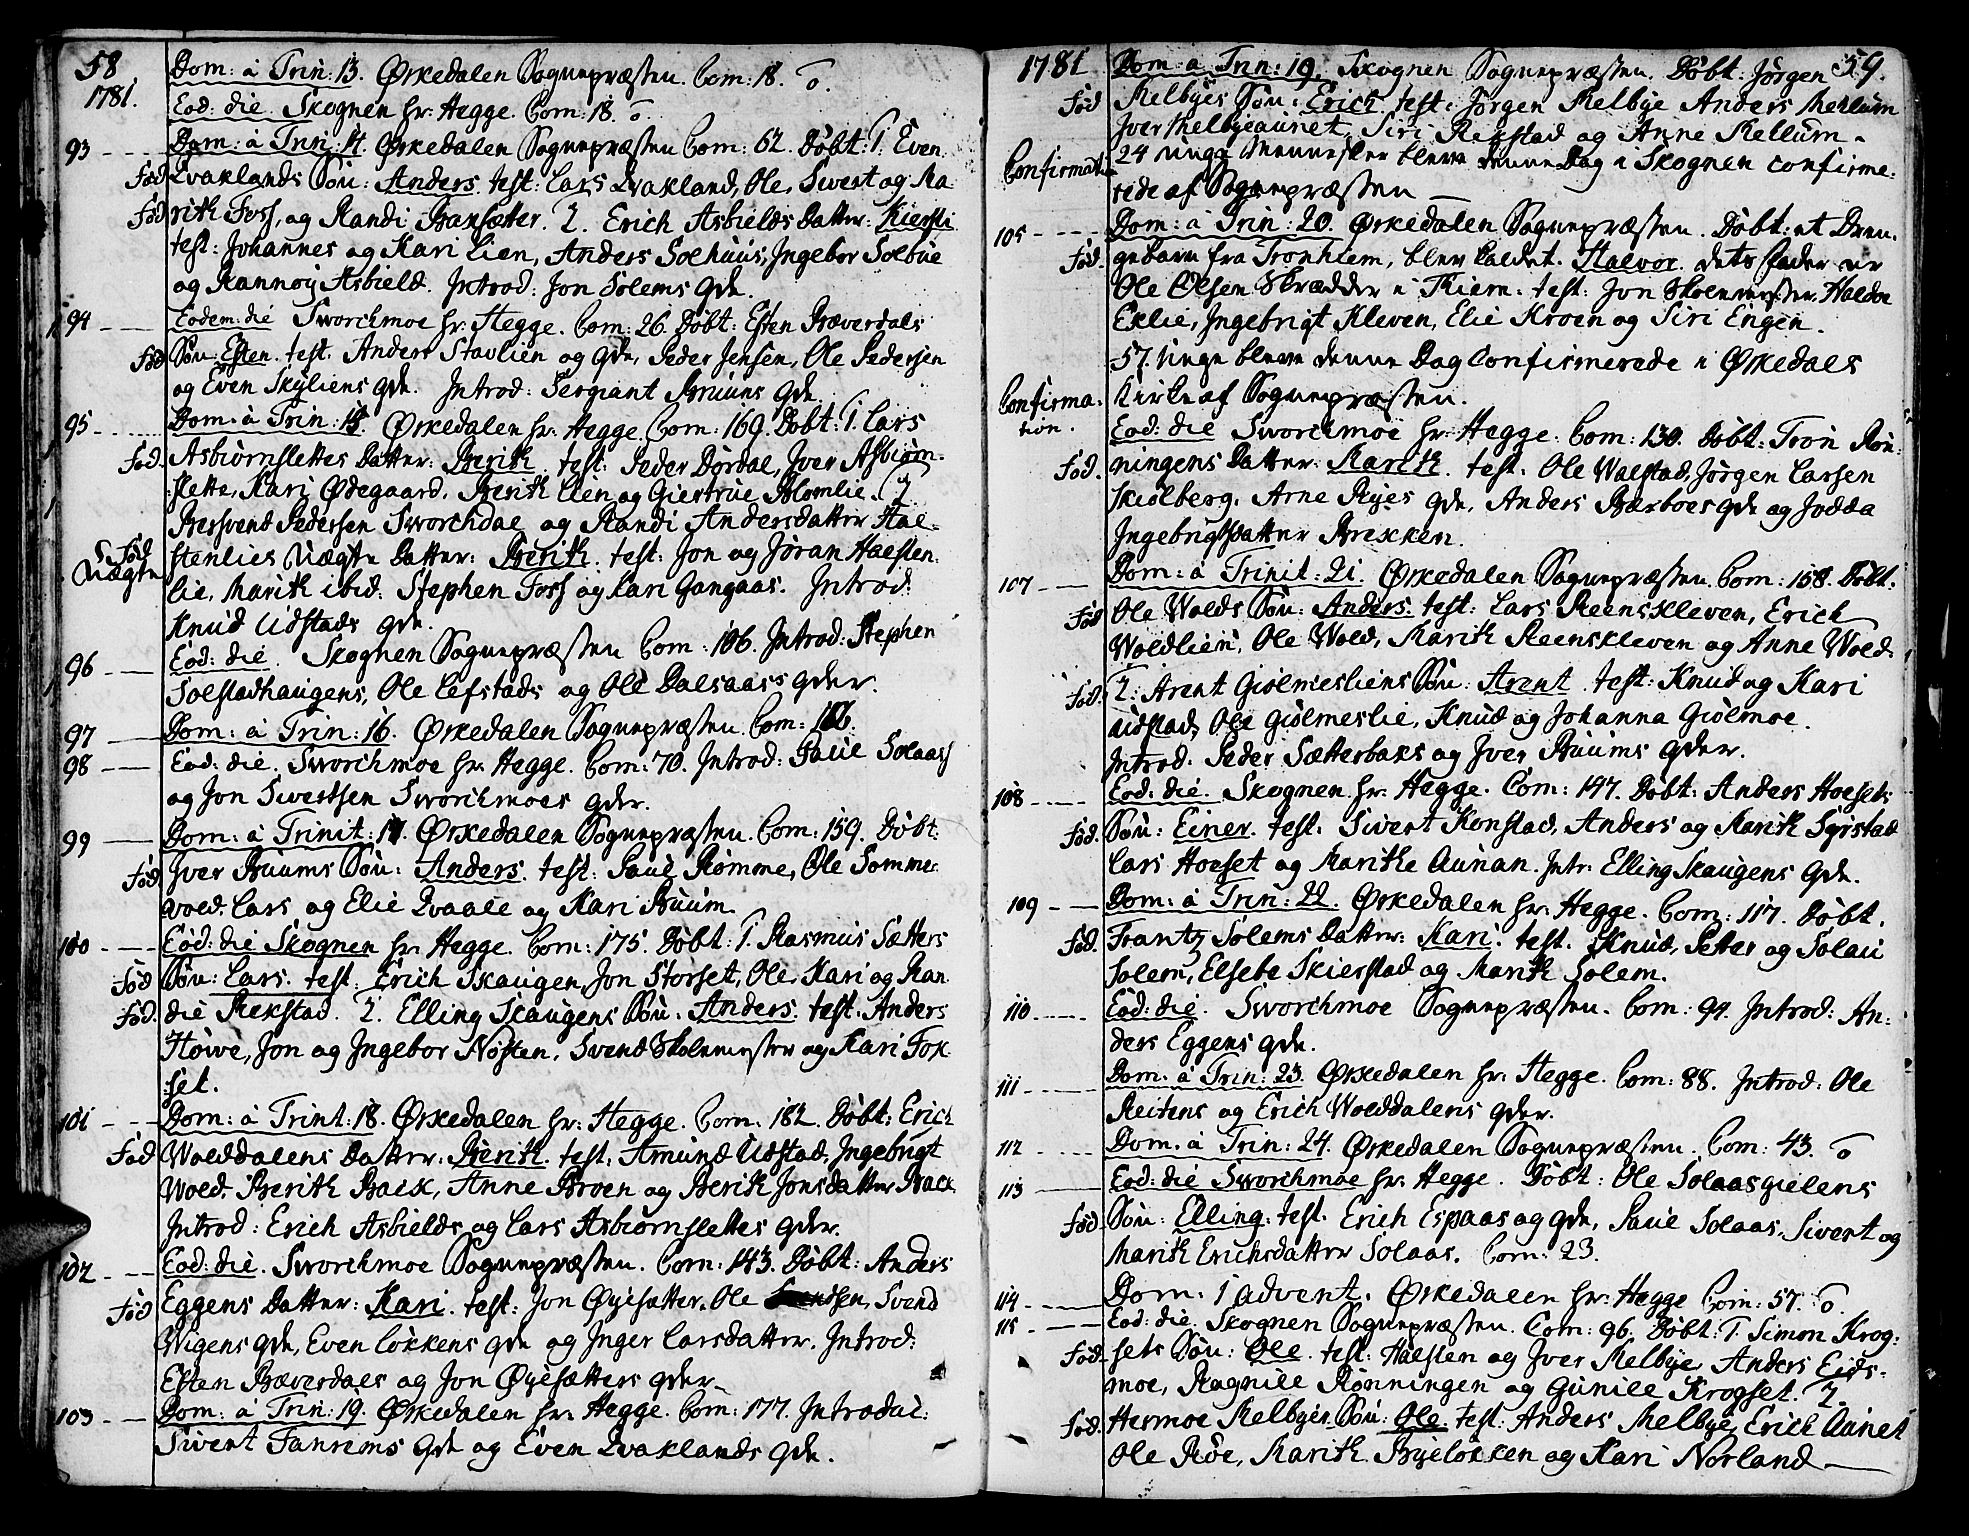 58
1781.
Dom: à Trin: 13. Ørkedalen Sognepræsten. Com: 18. o.
Eod: die. Skognen hr: Hegge. Com: 18. o
93 Dom: à Trin: 14. Ørkedalen Sognepræsten Com: 62. Døbt: 1. Even
Fød Qvaklands Søn: Anders. test: Lars Qvakland, Ole, Sivert og Ma-
Fød rith Foss, og Randi Bransætter. 2. Erich Asbields Datter: Kiersti
test: Johannes og Kari Lien, Anders Solhuus, Ingebor Solbue
og Rannoy Asbield. Introd: Jon Solems qde.
94 Eodem: die Sworchmoe hr: Hegge. Com: 26. Døbt: Esten Bæverdals
Fød Søn: Esten. test. Anders Stavlien og qde, Peder Jensen, Ole Pedersen
og Even Skyliens qde. Introd: Sergiant Bruuns qde.
95 Dom: à Trin: 15. Ørkedalen hr: Hegge. Com: 169. Døbt: 1. Lars
Fød. Asbiørnslettes Datter: Berith. test: Peder Dørdal, Iver Asbiørn-
slette, Kari Ødegaard, Berith Lien og Giertrue Blomlie. 2.
Bersvend Pedersen Sworchdal og Randi Andersdatter Hal-
Fød Uægte stenlies Uægte Datter: Berith. test: Jon og Jøran Halsten-
lie, Marith ibid: Stephen Foss og Kari Gangaas. Introd:
Knud Udstads qde.
96 Eod: die. Skognen Sognepræsten Com: 106. Introd: Stephen
Solstadhaugens, Ole Lefstads og Ole Dalsaass qder.
97 Dom: à Trin: 16. Ørkedalen Sognepræsten. Com: 166.
98 Eod: die. Sworchmoe hr: Hegge. Com: 70. Introd: Paul Solaass
og Jon Sivertsen Sworchmoes qder.
99 Dom: à Trinit: 17. Ørkedalen Sognepræsten. Com: 159. Døbt:
Fød Iver Buums Søn: Anders. test: Paul Rømme, Ole Sommer-
vold. Lars og Elie Qvaale og Kari Buum.
100 Eod: die Skognen hr: Hegge. Com: 175. Døbt: 1. Rasmus Sætters
Fød Søn: Lars. test: Erich Skaugen, Jon Storset, Ole, Kari og Ran-
Fød. die Rekstad. 2. Elling Skaugens Søn: Anders. test: Anders
Howe, Jon og Ingebor Nøsten, Svend Skolemester og Kari Fox-
set.
101 Dom: à Trint: 18. Ørkedalen hr: Hegge. Com. 182. Døbt: Erich
Fød Wolddalens Datter: Berith. test: Amund Udstad, Ingebrigt
Wold. Berith Back, Anne Broen og Berith Jonsdatter Back
Introd: Erich Asbields og Lars Asbiørnslettes qder.
102 Eod: die. Sworchmoe Sognepræsten. Com: 143. Døbt: Anders
Fød Eggens Datter: Kari. test: Jon Øyesætter, Ole Svend
Wigens qde, Even Løkkens qde og Inger Larsdatter. Introd:
Esten Bæverdals og Jon Øyesætters qder.
103 Dom: à Trin: 19. Ørkedalen hr: Hegge. Com: 177. Introduc:
Sivert Fanrems qde og Even Qvaklands qde.
1781 59.
Dom: à Trin: 19. Skognen Sognepræsten. Døbt: Jørgen
Fød Melbyes Søn: Erich. test: Jørgen Melbye Anders Mellum
Iver Melbyeaunet, Siri Rekstad og Anne Mellum.
Confirmat 24 unge Mennesker bleve denne Dag i Skognen confirme-
rede af Sognepræsten
105 Dom: à Trin: 20. Ørkedalen Sognepræsten. Døbt: et Dren-
Fød. gebarn fra Tronhiem, blev kaldet. Halvor. dets Fader er
Ole Olsen Skrædder i Thiem. test: Jon Skolemester, Haldo
Eklie, Ingebrigt Kleven, Elie Kroen og Siri Engen.
57. Unge bleve denne Dag Confirmerede i Ørkedals
Confirma-tion. Kirke af Sognepræsten.
Eod: die Sworchmoe hr: Hegge. Com: 130. Døbt: Tron Røn-
Fød. ningens Datter: Marith. test. Ole Walstad, Jørgen Larsen
Skiølberg, Arne Ryes qde, Anders Bærboes qde og Jodda
Ingebrigtsdatter Brekken.
107 Dom: à Trinit: 21. Ørkedalen Sognepræsten. Com: 158. Døbt.
Fød Ole Wolds Søn: Anders. test: Lars Reenskleven, Erich
Woldlien, Ole Wold, Marith Reenskleven og Anne Wold.
Fød. 2: Arent Giølmesliens Søn: Arent. test: Knud og Kari
Udstad, Ole Giølmeslie, Knud og Johanna Giølmoe.
Introd: Peder Sætterbaks og Iver Buums qder.
108 Eod: die. Skognen hr: Hegge. Com: 147. Døbt: Anders Hoesets
Fød. Søn: Einer. test. Sivert Konstad, Anders og Marith Syrstad
Lars Hoeset og Marithe Aunan. Intr: Elling Skaugens qde.
109 Dom: à Trin: 22. Ørkedalen hr: Hegge. Com: 117. Døbt.
Fød. Frantz Solems Datter: Kari. test. Knud, Petter og Solau
Solem, Elsebe Skierstad og Marith Solem.
110 Eod: die. Sworchmoe Sognepræsten. Com: 94. Introd: An-
ders Eggens qde.
111 Dom: à Trin: 23. Ørkedalen hr: Hegge. Com: 88. Introd: Ole
Reitens og Erich Wolddalens qder.
112 Dom: à Trin: 24. Ørkedalen Sognepræsten. Com: 43. o
113 Eod: die Sworchmoe hr: Hegge. Døbt: Ole Solaasgielens
Fød. Søn: Elling. test. Erich Espaas og qde, Paul Solaas, Sivert og
Marith Erichsdatter Solaas. Com: 23.
114 Dom: 1 advent. Ørkedalen hr: Hegge Com: 57. o.
115 Eod: die. Skognen Sognepræsten. Com: 96. Døbt: 1. Simon Krog-
Fød. sets Søn: Ole. test: Halsten og Iver Melbye, Anders Eids-
moe, Ragnild Rønningen og Gunild Krogset. 2.
Fød. Hermoe Melbyes Søn: Ole. test: Anders Melbye, Erich Aunet
Ole Roe, Marith Byeløkken og Kari Norland